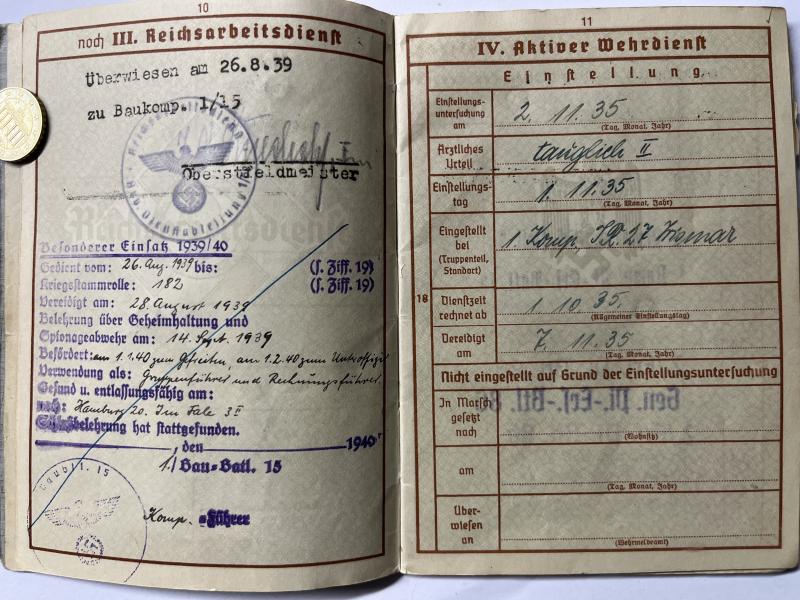 10
noch III. Reichsarbeitsdienst
Überwiesen am 26.8.39
zu Baukomp. 1/15
Oberstfeldmeister
Besonderer Einsatz 1939/40
Gedient vom: 26. Aug. 1939 bis: (s. Ziff. 19)
Kriegsstammrolle: 182 (s. Ziff. 19)
Vereidigt am: 28. August 1939
Belehrung über Geheimhaltung und
Spionageabwehr am: 14. Sept. 1939
Befördert: am 1.1.40 zum Gefreiten, am 1.2.40 zum Unteroffizier
Verwendung als: Gruppenführer und Rechnungsführer.
Gesund u. entlassungsfähig am:
nach: Hamburg 20. Im Tale 3 II
belehrung hat stattgefunden.
, den 1940
1./Bau-Batl. 15
Komp.-Führer
Baubtl. 15
11
IV. Aktiver Wehrdienst
Einstellung
Einstellungs-
untersuchung
am
2. 11. 35
(Tag, Monat, Jahr)
Ärztliches
Urteil
tauglich II
Einstellungs-
tag
1. 11. 35
(Tag, Monat, Jahr)
Eingestellt
bei
(Truppenteil,
Standort)
1. Komp. I.R. 27 Wismar
18
Dienstzeit
rechnet ab
1. 10. 35.
(Allgemeiner Einstellungstag)
Vereidigt
am
7. 11. 35
(Tag, Monat, Jahr)
Nicht eingestellt auf Grund der Einstellungsuntersuchung
In Marsch
gesetzt
nach
(Wohnsitz)
am
(Tag, Monat, Jahr)
Über-
wiesen
an
(Wehrmeldeamt)